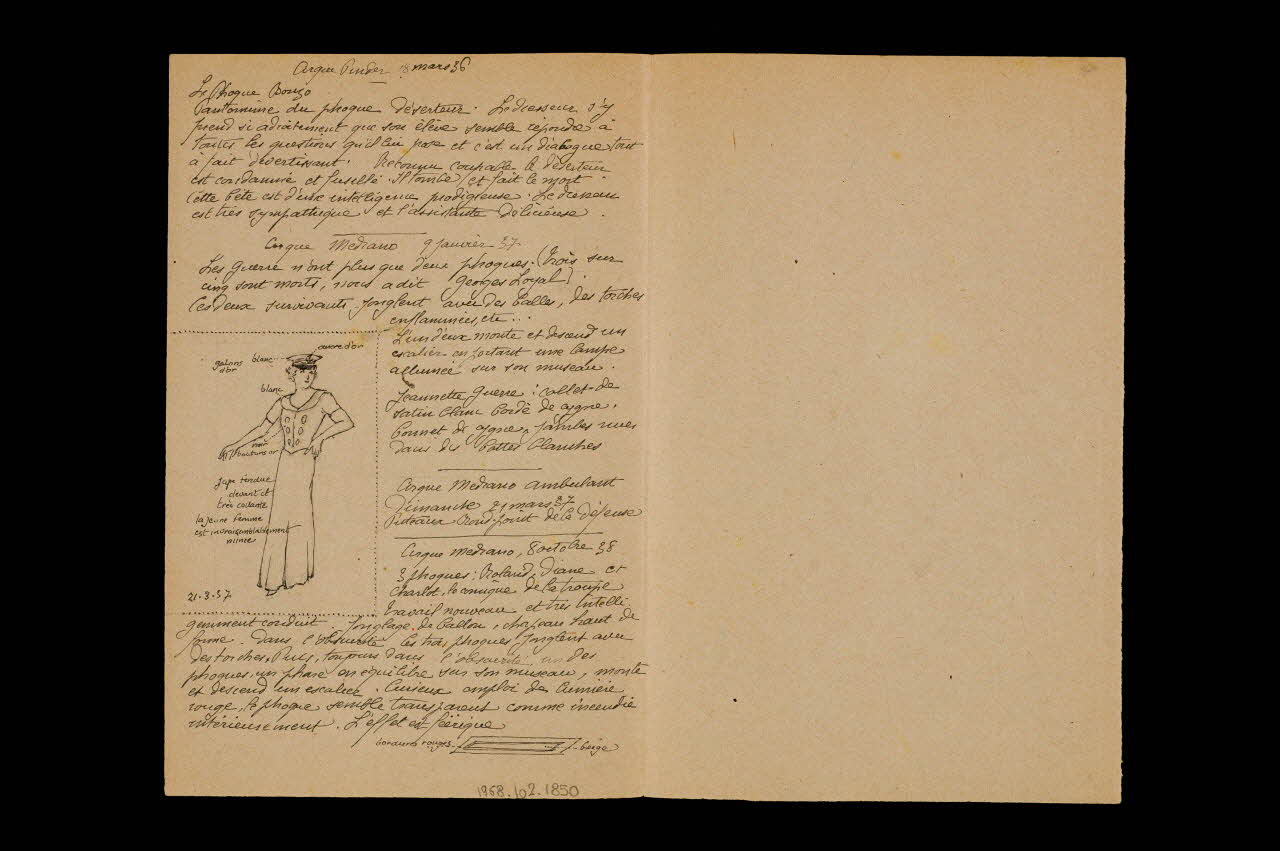 Cirque Pinder 8 mars 36
Le Phoque Bonzo
Pantomime du phoque déserteur. Le dresseur s'y
prend si adroitement que son élève semble répondre à
toutes les questions qu'il lui pose et c'est un dialogue tout
à fait divertissant. Reconnu coupable le déserteur
est condamné et fusillé. Il tombe et fait le mort.
Cette bête est d'une intelligence prodigieuse. Le dresseur
est très sympathique et l'assistante délicieuse.
Cirque Medrano 9 janvier 37
Les Guerre n'ont plus que deux phoques. (Trois sur
cinq sont morts, nous a dit Georges Loyal).
Ces deux survivants jonglent avec des balles, des torches
enflammées, etc...
L'un d'eux monte et descend un
escalier en portant une lampe
allumée sur son museau.
Jeannette Guerre : collet de
satin blanc bordé de cygne.
bonnet de cygne, jambes nues
dans des bottes blanches
ancre d'or
galons d'or
blanc
blanc
noir
boutons or
jupe tendue
devant et
très collante
la jeune femme
est invraisemblablement
mince
21-3-37
Cirque Medrano ambulant
Dimanche 21 mars 37
Puteaux Rond-point de la Défense
Cirque Medrano, 8 octobre 38
3 phoques : Roland, Diane et
Charlot, le comique de la troupe
Travail nouveau et très intelli-
gemment conduit. Jonglage de ballon, chapeau haut de
forme. Dans l'obscurité les trois phoques jonglent avec
des torches. Puis, toujours dans l'obscurité un des
phoques, un phare en équilibre sur son museau, monte
et descend un escalier. Curieux emploi de lumière
rouge, le phoque semble transparent comme incendié
intérieurement. L'effet est féerique
bordures rouges
beige
1968.102.1850